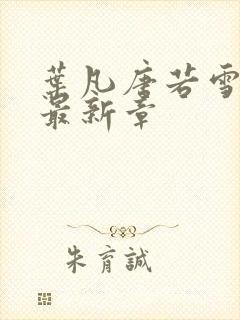 葉凡唐若雪
最新章
朱育誠